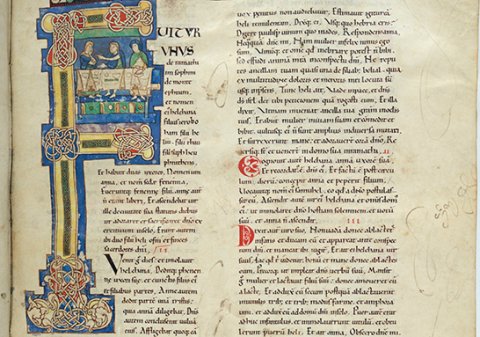 UIT UR
UNUS
de ramatha
im sophim
de monte
ephraim.
et nomen
ei helchana
filius ierobo
am filii he
liu. filii thau
filii suph
Et habuit duas uxores. Nomen uni
anna. et nomen fenenna.
Fueruntque fenenne filii. anne aut
non erant liberi. Et ascendebat uir
ille de ciuitate sua statutis diebus
ut adoraret et sacrificaret dno ex
ercituum in silo. Erant autem
ibi duo filii heli. ofni et finees
sacerdotes dni.
Venit g dies et immolauit
helchana. Deditq; phenen
ne uxori sue et cunctis filiis et
filiabus partes. Anne autem
dedit parte una tristis.
quia anna diligebat. Dns
autem concluserat uuluam
eius. Affligebat quoq; ea
uox penitus non audiebatur. Estimauit g eam
heli temulentam. Dixitq; ei. Usq; quo ebria eris?
Digere paulisp uinum quo mades. Respondens
anna. Nequaquam dne mi. Nam mulier infelix nimis ego
sum. Vinum et omne qd inebriare potest n bibi.
sed effudi anima mea in conspectu dni. Ne repu
tes ancillam tuam quasi una de filiab; belial. quia
ex multitudine doloris et meroris mei locuta
sum usq; in presens. Tunc heli ait. Vade in pace. et ds
isrl det tibi petitionem qua rogasti eum. Et illa
dixit. Utinam inueniat ancilla tua gram in oculis
tuis. Et abiit mulier in uiam suam et comedit et
bibit.
Et surrexerunt mane. et adorauerunt cora dno. Re
uersiq; st et uenert in domu sua in ramatha.
Cognouit aut helchana anna uxore sua.
Et recordatus e ei dns. Et factu e post circu
lum dieru. concepit anna et peperit filium.
Uocauitq; nom ei samuhel. eo qd a dno postulas
set eum. Ascendit aut uir ei helchana. et omnis dom
ei. ut immolaret dno hostiam solennem. et uotu
suu. et anna n ascendit.
Dixit enim uiro suo. Non uada donec ablactet
infans et ducam eum. et appareat ante conspec
tum dni. et maneat ibi iugit. Et ait ei helchana uir
suus. Fac qd t uidetur bonu. et mane donec ablactes
eum. Precorq; ut impleat dns uerbu suu. Mansit
g mulier et lactauit filiu suu. donec amoueret eu
a lacte. Et adduxit eu secu postqua ablactauerat
in uitulis trib; et trib; modiis farine. et amphora
uini. et adduxit eu ad domu dni in silo. Puer aut erat
adhuc infantulus. et immolauerunt uitulu. et obtule
runt pueru heli. Et ait anna. Obsecro dne mi.